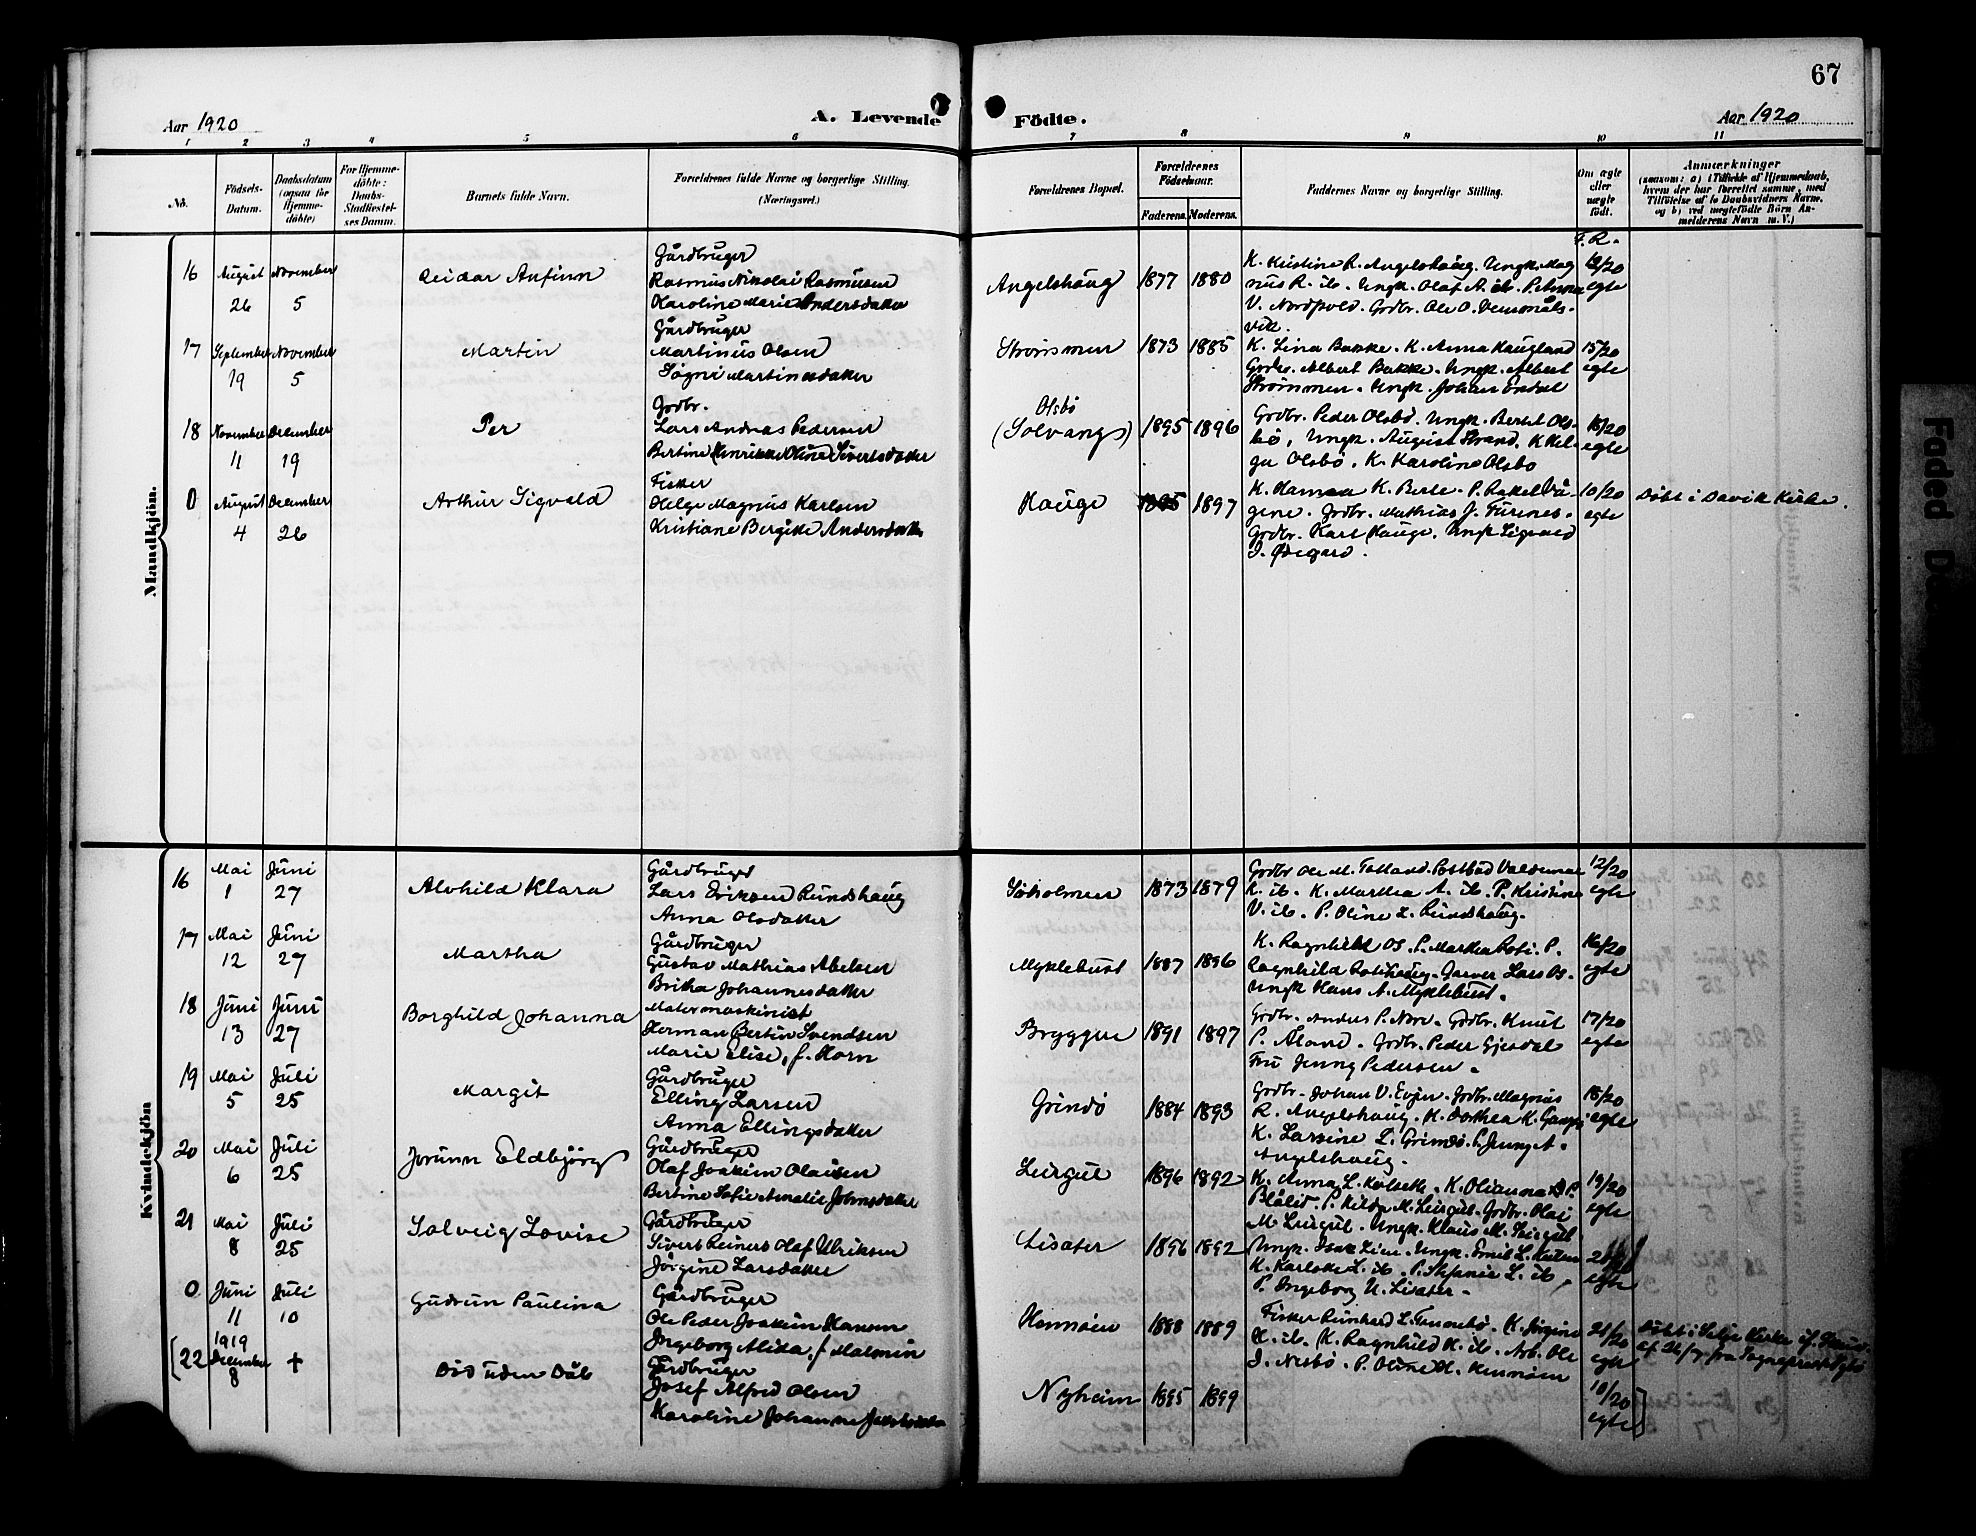 67
Aar 1920
A. Levende Födte.
Aar 1920
1 2 3 4 5 6 7 8 9 10 11
No.
Födsels-
Datum.
Daabsdatum
(ogsaa for
Hjemme-
döbte)
For Hjemme-
döbte:
Daabs-
Stadfæstel-
ses Datum.
Barnets fulde Navn.
Forældrenes fulde Navne og borgerlige Stilling.
(Næringsvei.)
Forældrenes Bopæl.
Forældrenes
Födselsaar.
Faderens. Moderens.
Faddernes Navne og borgerlige Stilling.
Om ægte
eller
uægte
födt.
Anmærkninger
(saasom: a) i Tilfælde af Hjemmedaab,
hvem der har forrettet samme, med
Tilföielse af to Daabsvidners Navne,
og b) ved uægtefödte Börn An-
melderens Navn m. V.)
Mandkjön.
F. R.
16 August 26 November 5
Reidar Anfinn
Gårdbruger
Rasmus Nikolai Rasmusen
Karoline Marie Andersdatter
Angelshaug 1877 1880
K. Kristine R. Angelshaug. Ungk. Mag
nus R. ib. Ungk. Olaf A. ib. P. Anna
V. Nordpoll. Grdbr. Ole O. Dennmåls-
vik.
egte
17 September 19 November 5
Martin
Gårdbruger
Martinus Olsen
Søgni Martinesdatter
Strømmen 1873 1885
K. Lina Bakke. K. Anna Haugland
Grdbr. Albert Bakke. Ungk. Albert
Strømmen. Ungk. Johan Endal
15/20
egte
18 November 11 December 19
Per
Grdbr.
Lars Andreas Pedersen
Bertine (Henrikke Oline) Sivertsdatter
Olsbö
(Solvangs) 1895 1896
Grdbr. Peder Olsbö. Ungk. Bertel Ols-
bö, Ungk. August Strand, K. Hel-
ga Olsbö. K. Karoline Olsbo
18/20
egte
0 August 4 December 26
Arthur Sigvald
Fisker
Helge Magnus Karlsen
Kristiane Bergitte Andersdatter
Hauge 1897
K. Hanna K. Berle. P. Rakel Vå
gene. Grdbr. Mathias J. Furenes.
Grdbr. Karl Hauge. Ungk. Sigvald
I. Ødegård.
10/20
egte
Döbt i Davik Kirke.
Kvindekjön
16 Mai 1 Juni 27
Alvhild Klara
Gårdbruger
Lars Eriksen Rundshaug
Anna Olsdatter
Söholmen 1873 1879
Grdbr Ole M. Totland. Postbud Valdemar
K. ib. K. Martha A. ib. P. Kristine
V. ib. P. Oline L. Rundshaug.
12/20
egte
17 Mai 12 Juni 27
Martha
Gårdbruger
Gustav Mathias Abelsen
Britha Johannesdatter
Myklebust 1887 1896
K. Ragnhild Os. P. Martha Roti. P.
Ragnhild Rotihaug. Garver Lars Os.
Ungk Hans A. Myklebust.
16/20
egte
18 Juni 13 Juni 27
Borghild Johanna
Motormaskinist
Herman Bertin Svendsen
Marie Elise, f. Horn
Bryggen 1891 1897
Grdbr. Anders P. Nore. Grdbr. Knut
P. Ålane. Grdbr. Peder Gjesdal
Fru Jenny Pedersen.
17/20
egte
19 Mai 5 Juli 25
Margit
Gårdbruger
Elling Larsen
Anna Ellingsdatter
Grindö 1884 1893
Grdbr. Johan V. Evjen. Grdbr. Magnus
R. Angelshaug. K. Dorthea K. Gangs
K. Larsine L. Grindö. P. Jenny A.
Angelshaug.
18/20
egte
20 Mai 6 Juli 25
Jorunn Eldbjörg
Gårdbruger
Olaf Joakim Olaisen
Bertine Sofie Amalie Johnsdatter
Leirgul 1896 1892
K. Anna L. Kolseth. K. Olianna D. P.
Blålid. P. Hilda M. Leirgul. Grdbr. Olai
M. Leirgul. Ungk. Klaus M. Leirgul
19/20
egte
21 Mai 8 Juli 25
Solveig Lovise
Gårdbruger
Sivert Reinert Olaf Ulriksen
Jörgine Larsdatter
Lisæter 1896 1892
Ungk. Isak Lien. Ungk. Emil L.
K. Karlotte L. ib. P. Stefanie L. ib,
P. Ingeborg U. Lisæter.
egte
0 Juni 11 Juli 10
Gudrun Paulina
Gårdbruger
Ole Peder Joakim Hansen
Ingeborg Alida, f. Malmin
Hennöen 1888 1889
Fisker Reinhard L. Tunnebö. K. Jörgine
H. ib. K. Ragnhild H. ib. Arb. Ole
I. Nesbö. P. Oline H. Hennöen
21/20
egte
Döbt i Selje Kirke if. Skriv.
af 26/7 fra Sogneprest
(22 1919 December 8 †
Död uden Dåb
Gårdbruger
Josef Alfred Olsen
Karoline Johanne Jakobsdatter
Nyheim 1895 1899
10/20
egte
Faded D